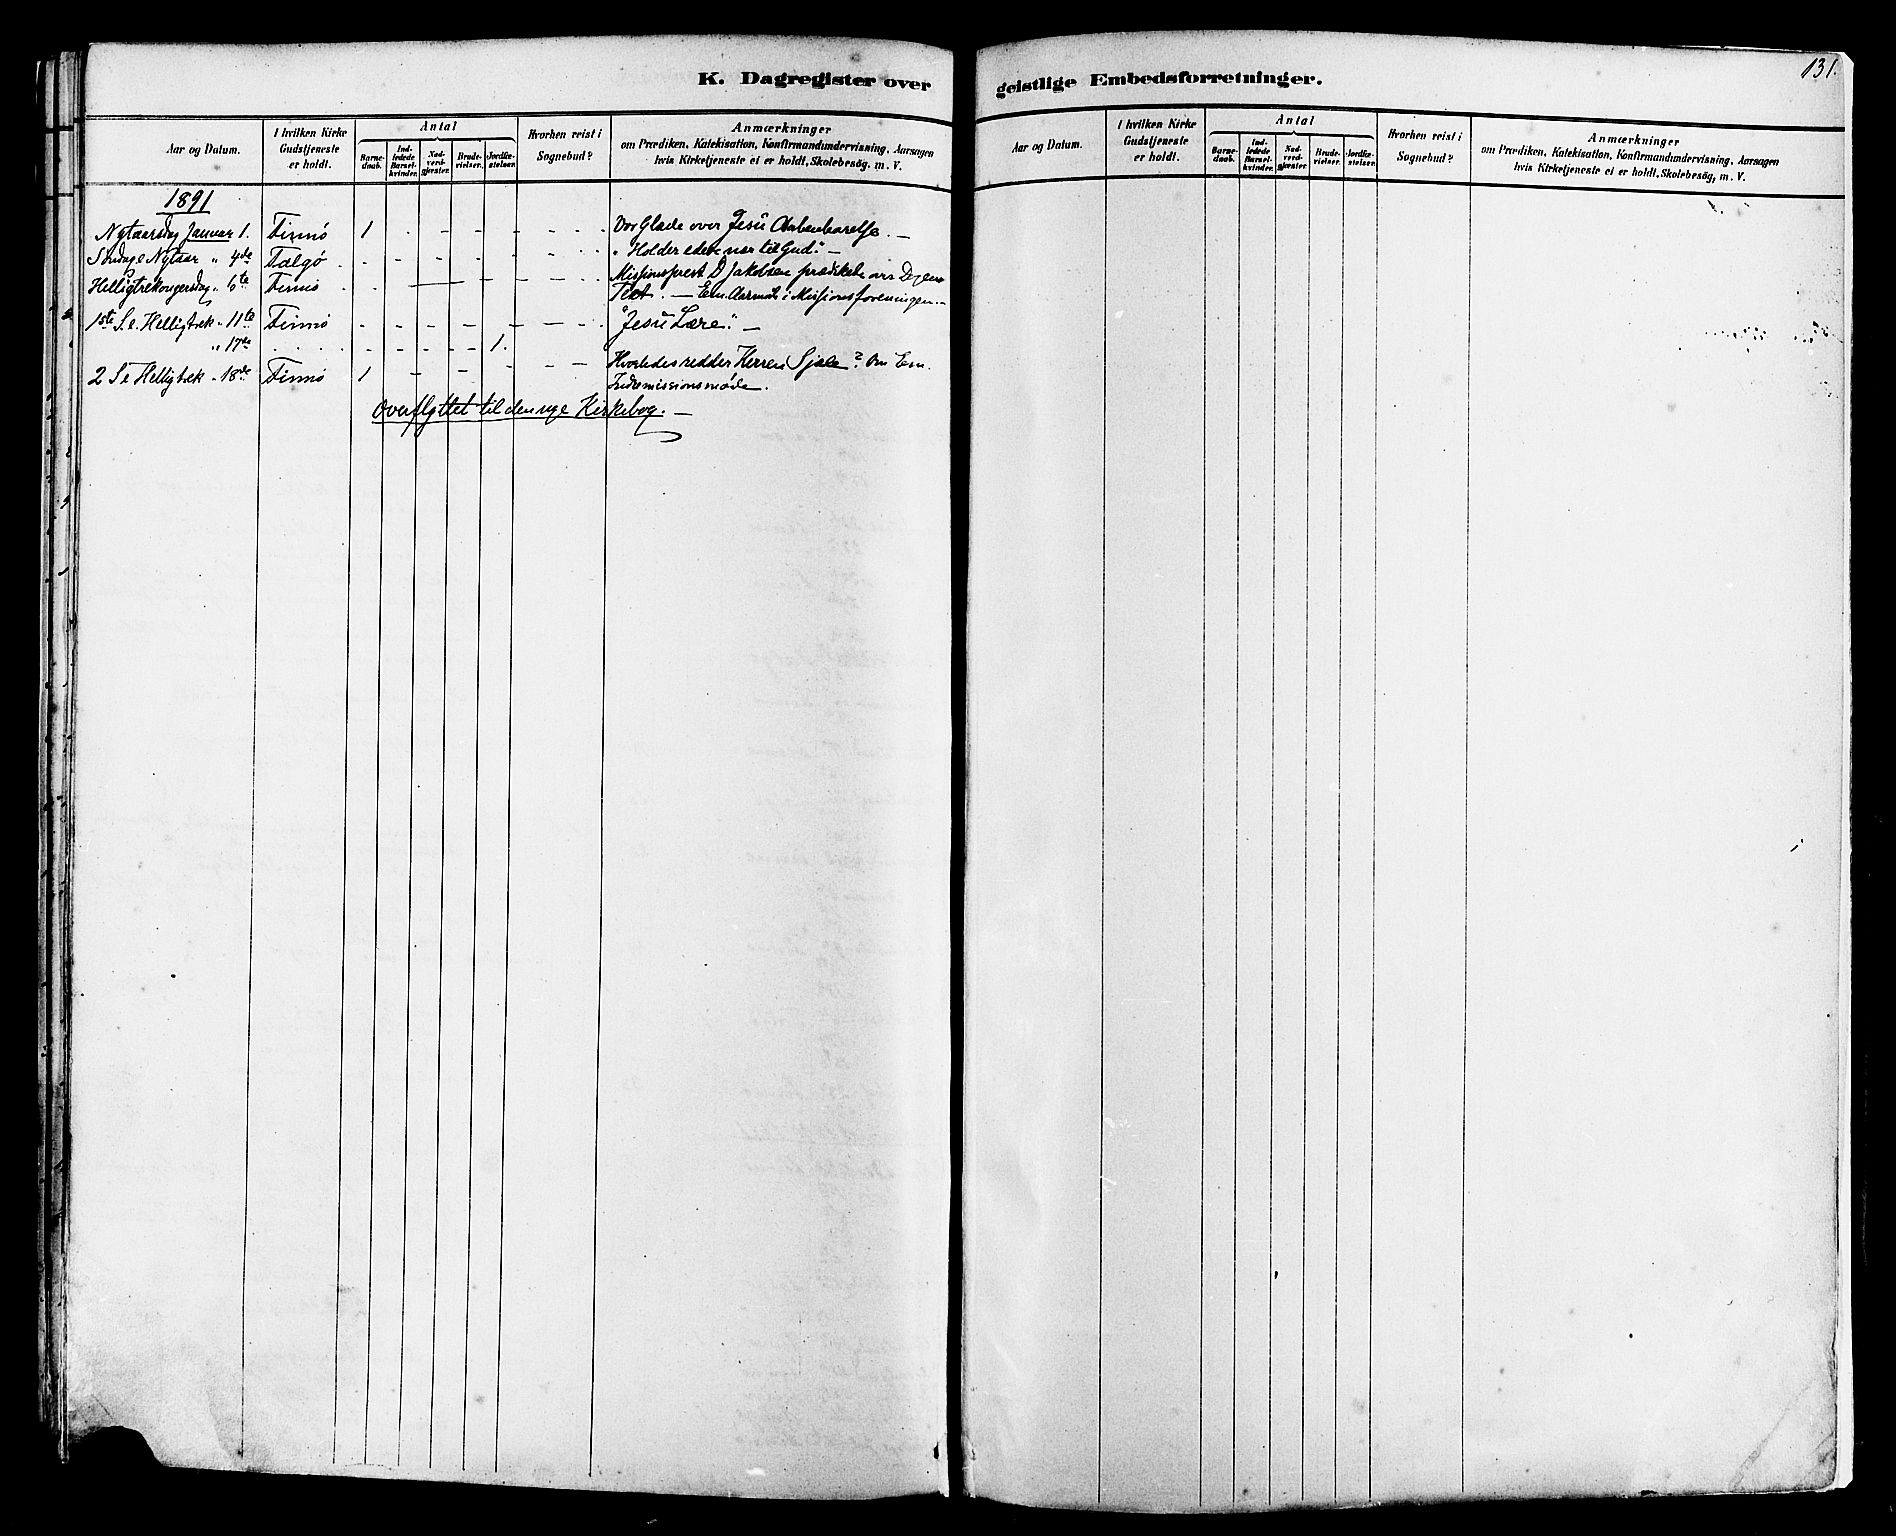 K. Dagregister over geistlige Embedsforretninger.
131.
Aar og Datum.
I hvilken Kirke
Gudstjeneste
er holdt.
Antal
Barne-
daab.
Ind-
ledede
Barsel-
kvinder.
Nad-
verd-
gjester.
Brude-
vielser.
Jordfæ-
stelser.
Hvorhen reist i
Sognebud?
Anmærkninger
om Prædiken, Katekisation, Konfirmandundervisning, Aarsagen
hvis Kirketjeneste ei er holdt, Skolebesög, m. V.
1891
Nytaarsdag Januar 1. Finnö 1 - - - - - Vor Glæde over Jesu Aabenbarelse. -
Söndag e Nytaar " 4de Talgö - - - - - - "Holder eder nær til Gud". -
Helligtrekongersdag " 6te Finnö - - - - - Missionsprest D Jakobsen prædikede over Dagens
Text. - Em. Aarmöte i Missionsforeningen. -
1ste S. e. Helligtrek " 11te Finnö - - - - - - "Jesu Lære". -
" 17de - - - - - 1.
2 S e Helligtrek " 18de Finnö 1 - - - - - Hvorledes redder Herren Sjæle? Om Em.
Indremissionsmöde.
Overflyttet til den nye Kirkebog. -
Aar og Datum.
I hvilken Kirke
Gudstjeneste
er holdt.
Antal
Barne-
daab.
Ind-
ledede
Barsel-
kvinder.
Nad-
verd-
gjester
Brude-
vielser.
Jordfæ-
stelser.
Hvorhen reist i
Sognebud?
Anmærkninger
om Prædiken, Katekisation, Konfirmandundervisning, Aarsagen
hvis Kirketjeneste ei er holdt, Skolebesög, m. V.